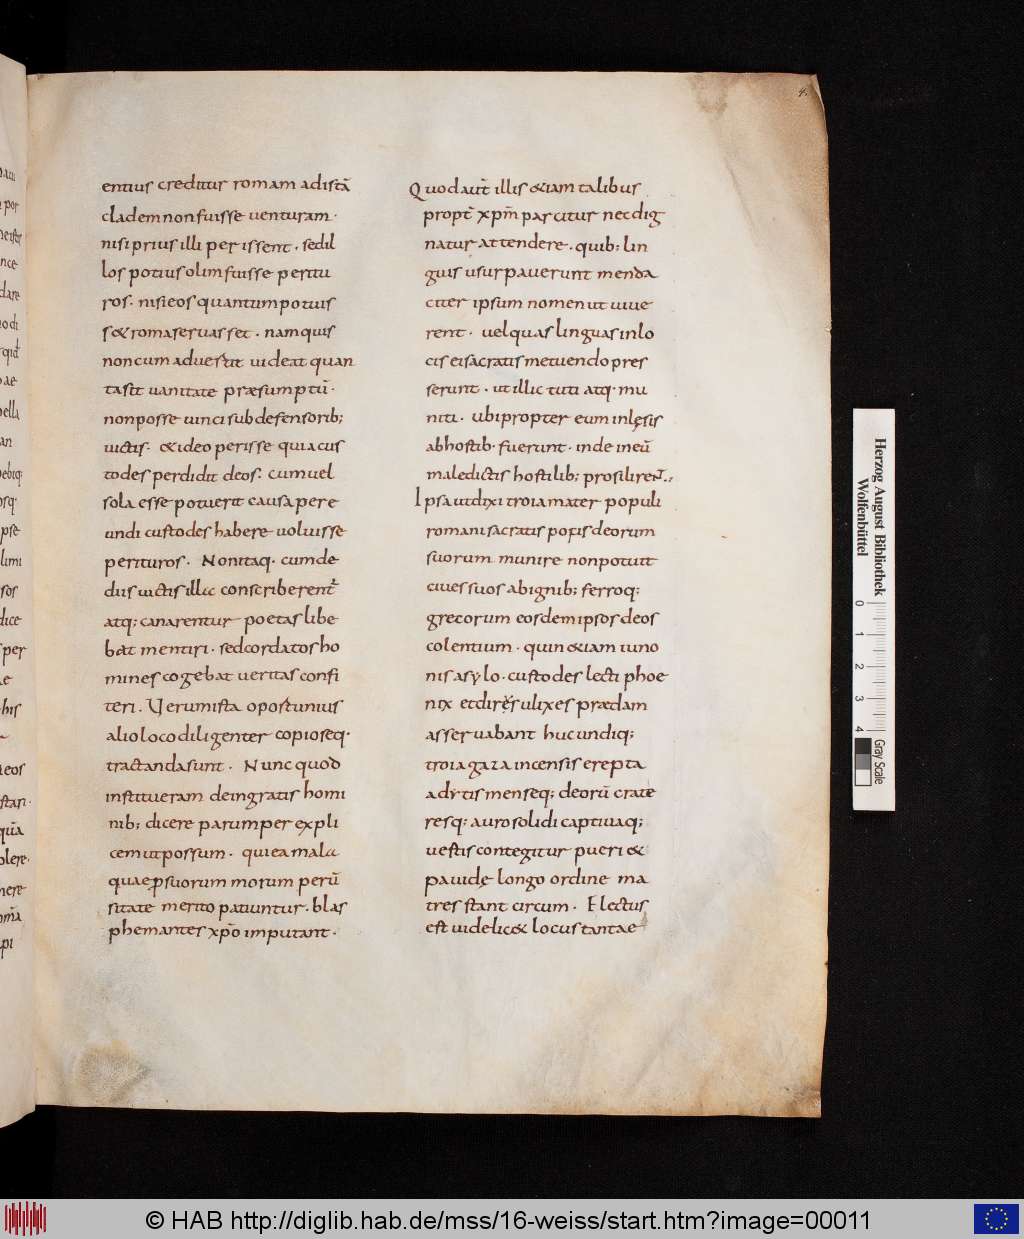 4.
entius creditur romam adistā
cladem non fuisse uenturam·
nisi prius illi perissent· sed il
los potius olim fuisse peritu
ros· nisi eos quantum potuis
s& roma seruasset· nam quis
non cum aduertit uideat quan
ta sit uanitate præsumptū·
non posse uinci sub defensorib;
uictis· & ideo perisse quia cus
todes perdidit deos· cum uel
sola esse potuerit causa pere
undi custodes habere uoluisse
perituros· Non itaq· cum de
diis uictis illa conscriberent̄
atq; canarentur poetas libe
bat mentiri· sed cordatos ho
mines cogebat ueritas confi
teri· Uerum ista oportunius
alio loco diligenter copioseq·
tractanda sunt· Nunc quod
institueram de ingratis homi
nib; dicere parumper expli
cem ut possum· qui ea mala
quae ꝑ suorum morum perū
sitate merito patiuntur· blas
phemantes xp̄o imputant·
Quod aut̄ illis &iam talibus
propt̄ xpm̄ parcitur nec dig
natur attendere· quib; lin
guis usurpauerunt menda
citer ipsum nomen ut uiue
rent· uel quas linguas in lo
cis ei sacratis metuendo pres
serunt· ut illic tuti atq· mu
niti· ubi propter eum inlęsis
ab hostib· fuerunt· inde in eū
maledictis hostilib; prosilirent·,
Ipsa ut dixi troia mater populi
romani sacratis popis deorum
suorum munire non potuit
ciues suos ab ignib; ferroq;
grecorum eosdem ipsos deos
colentium· quin &iam iuno
nis asylo· custodes lecti phoe
nix et dirus ulixes prædam
asseruabant huc undiq;
troia gaza incensis erepta
adytis menseq; deorū crate
resq; auro solidi captiuaq;
uestis contegitur pueri &
pauidę longo ordine ma
tres stant circum· Electus
est uidelic& locus tantae
Herzog August Bibliothek
Wolfenbüttel
0 1 2 3 4
Gray Scale
© HAB http://diglib.hab.de/mss/16-weiss/start.htm?image=00011